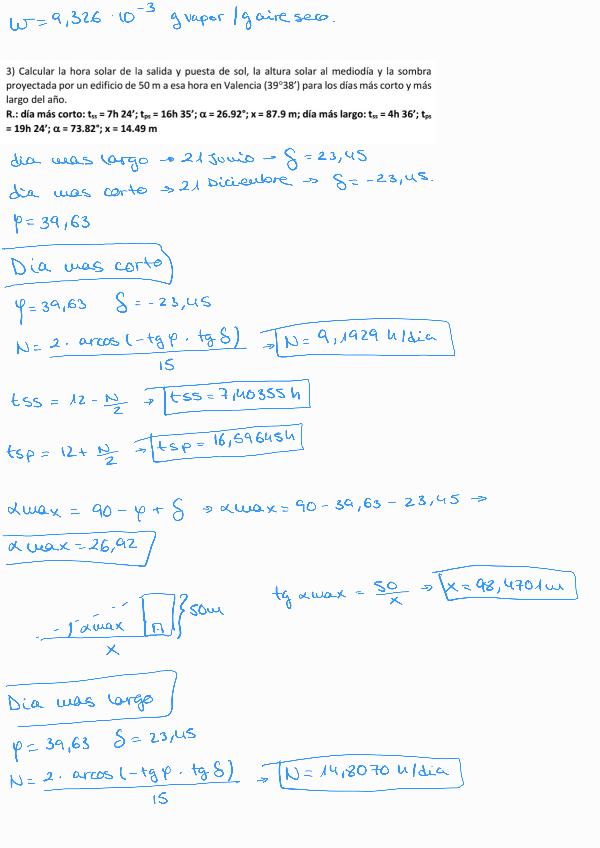 W = 9,326 · 10⁻³ g vapor / g aire seco.
3) Calcular la hora solar de la salida y puesta de sol, la altura solar al mediodía y la sombra
proyectada por un edificio de 50 m a esa hora en Valencia (39°38’) para los días más corto y más
largo del año.
R.: día más corto: tss = 7h 24’; tps = 16h 35’; α = 26.92°; x = 87.9 m; día más largo: tss = 4h 36’; tps
= 19h 24’; α = 73.82°; x = 14.49 m
dia mas largo → 21 Junio → δ = 23,45
dia mas corto → 21 Diciembre → δ = -23,45.
φ = 39,63
Dia mas corto
φ = 39,63 δ = -23,45
N = 2 · arcos (-tg φ · tg δ) / 15 → N = 9,1929 h/dia
tss = 12 - N/2 → tss = 7,40355 h
tsp = 12 + N/2 → tsp = 16,59645 h
αmax = 90 - φ + δ → αmax = 90 - 39,63 - 23,45 →
αmax = 26,92
tg αmax = 50/x → x = 98,4701 m
50m
αmax
x
Dia mas largo
φ = 39,63 δ = 23,45
N = 2 · arcos (-tg φ · tg δ) / 15 → N = 14,8070 h/dia